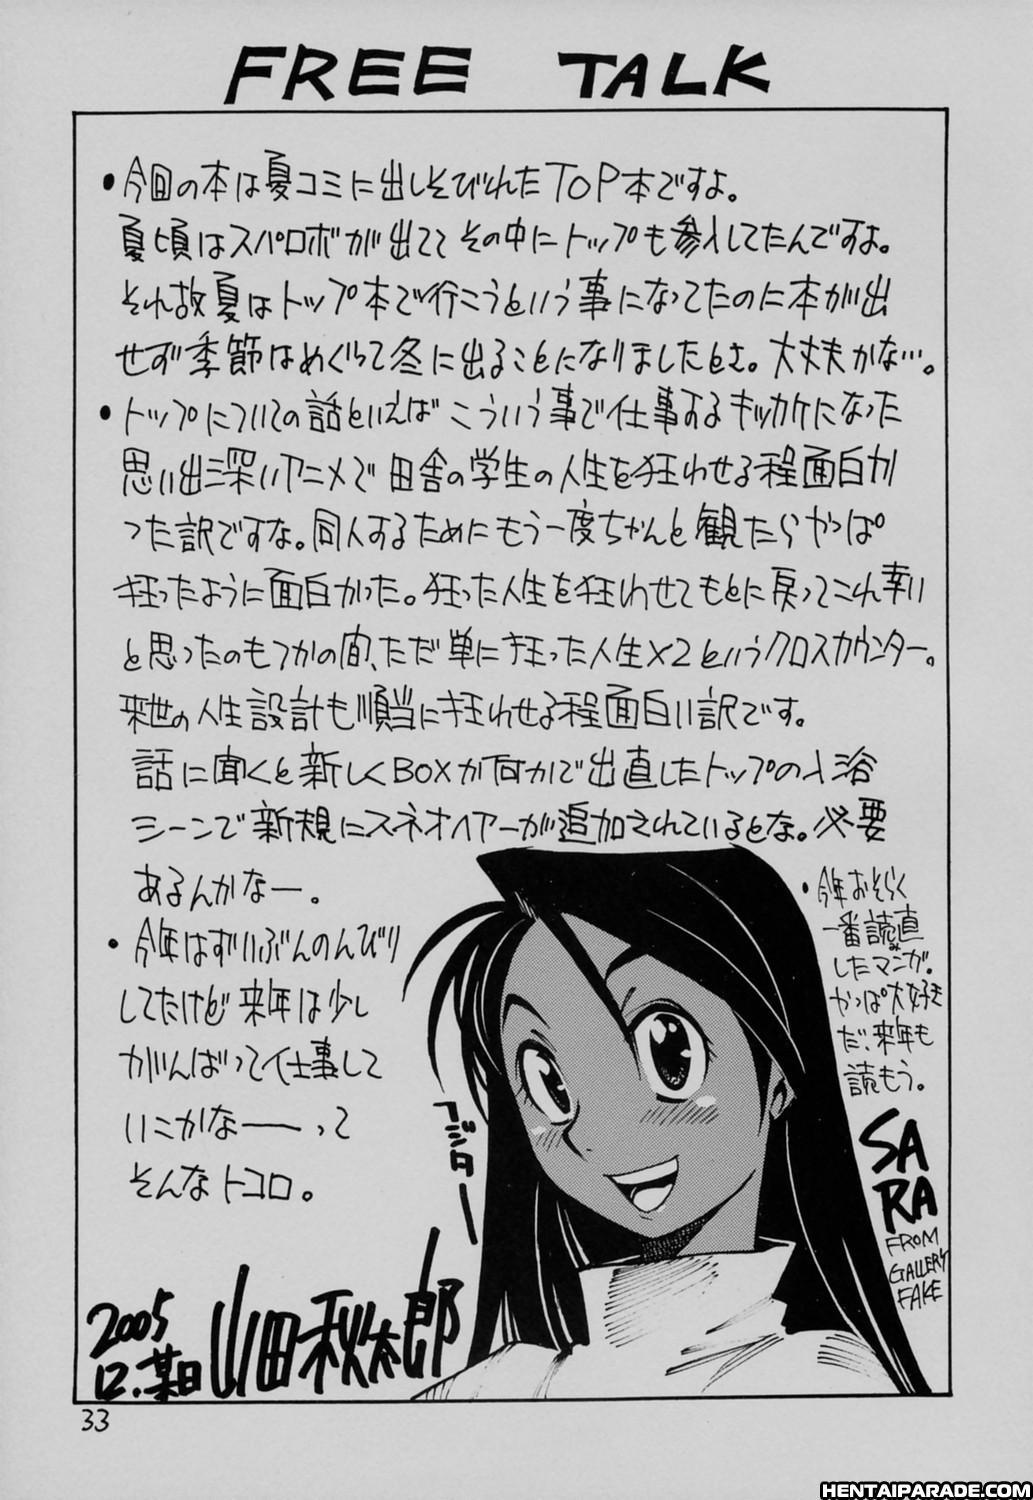 FREE TALK
•今回の本は夏コミに出しそびれたTOP本ですよ。
夏頃はスパロボが出ててその中にトップも参入してたんですよ。
それ故夏はトップ本で行こうという事になってたのに本が出
せず季節はめぐって冬に出ることになりましたとさ。大丈夫かな…。
•トップについての話といえばこういう事で仕事するキッカケになった
思い出深いアニメで田舎の学生の人生を狂わせる程面白か
った訳ですな。同人するためにもう一度ちゃんと観たらやっぱ
狂ったように面白かった。狂った人生を狂わせてもとに戻ってこれ幸い
と思ったのもつかの間、ただ単に狂った人生×2というクロスカウンター。
来世の人生設計も順当に狂わせる程面白い訳です。
話に聞くと新しくBOXか何かで出直したトップの入浴
シーンで新規にスネオヘアーが追加されているとな。必要
あるんかなー。
•今年はずいぶんのんびり
してたけど来年は少し
がんばって仕事して
いこかなーーって
そんなトコロ。
•今年おそらく
一番読み直
したマンガ。
やっぱ大好き
だ、来年も
読もう。
SA
RA
FROM
GALLERY
FAKE
フジター
2005
12.某日
山田秋太郎
33
HENTAIPARADE.COM